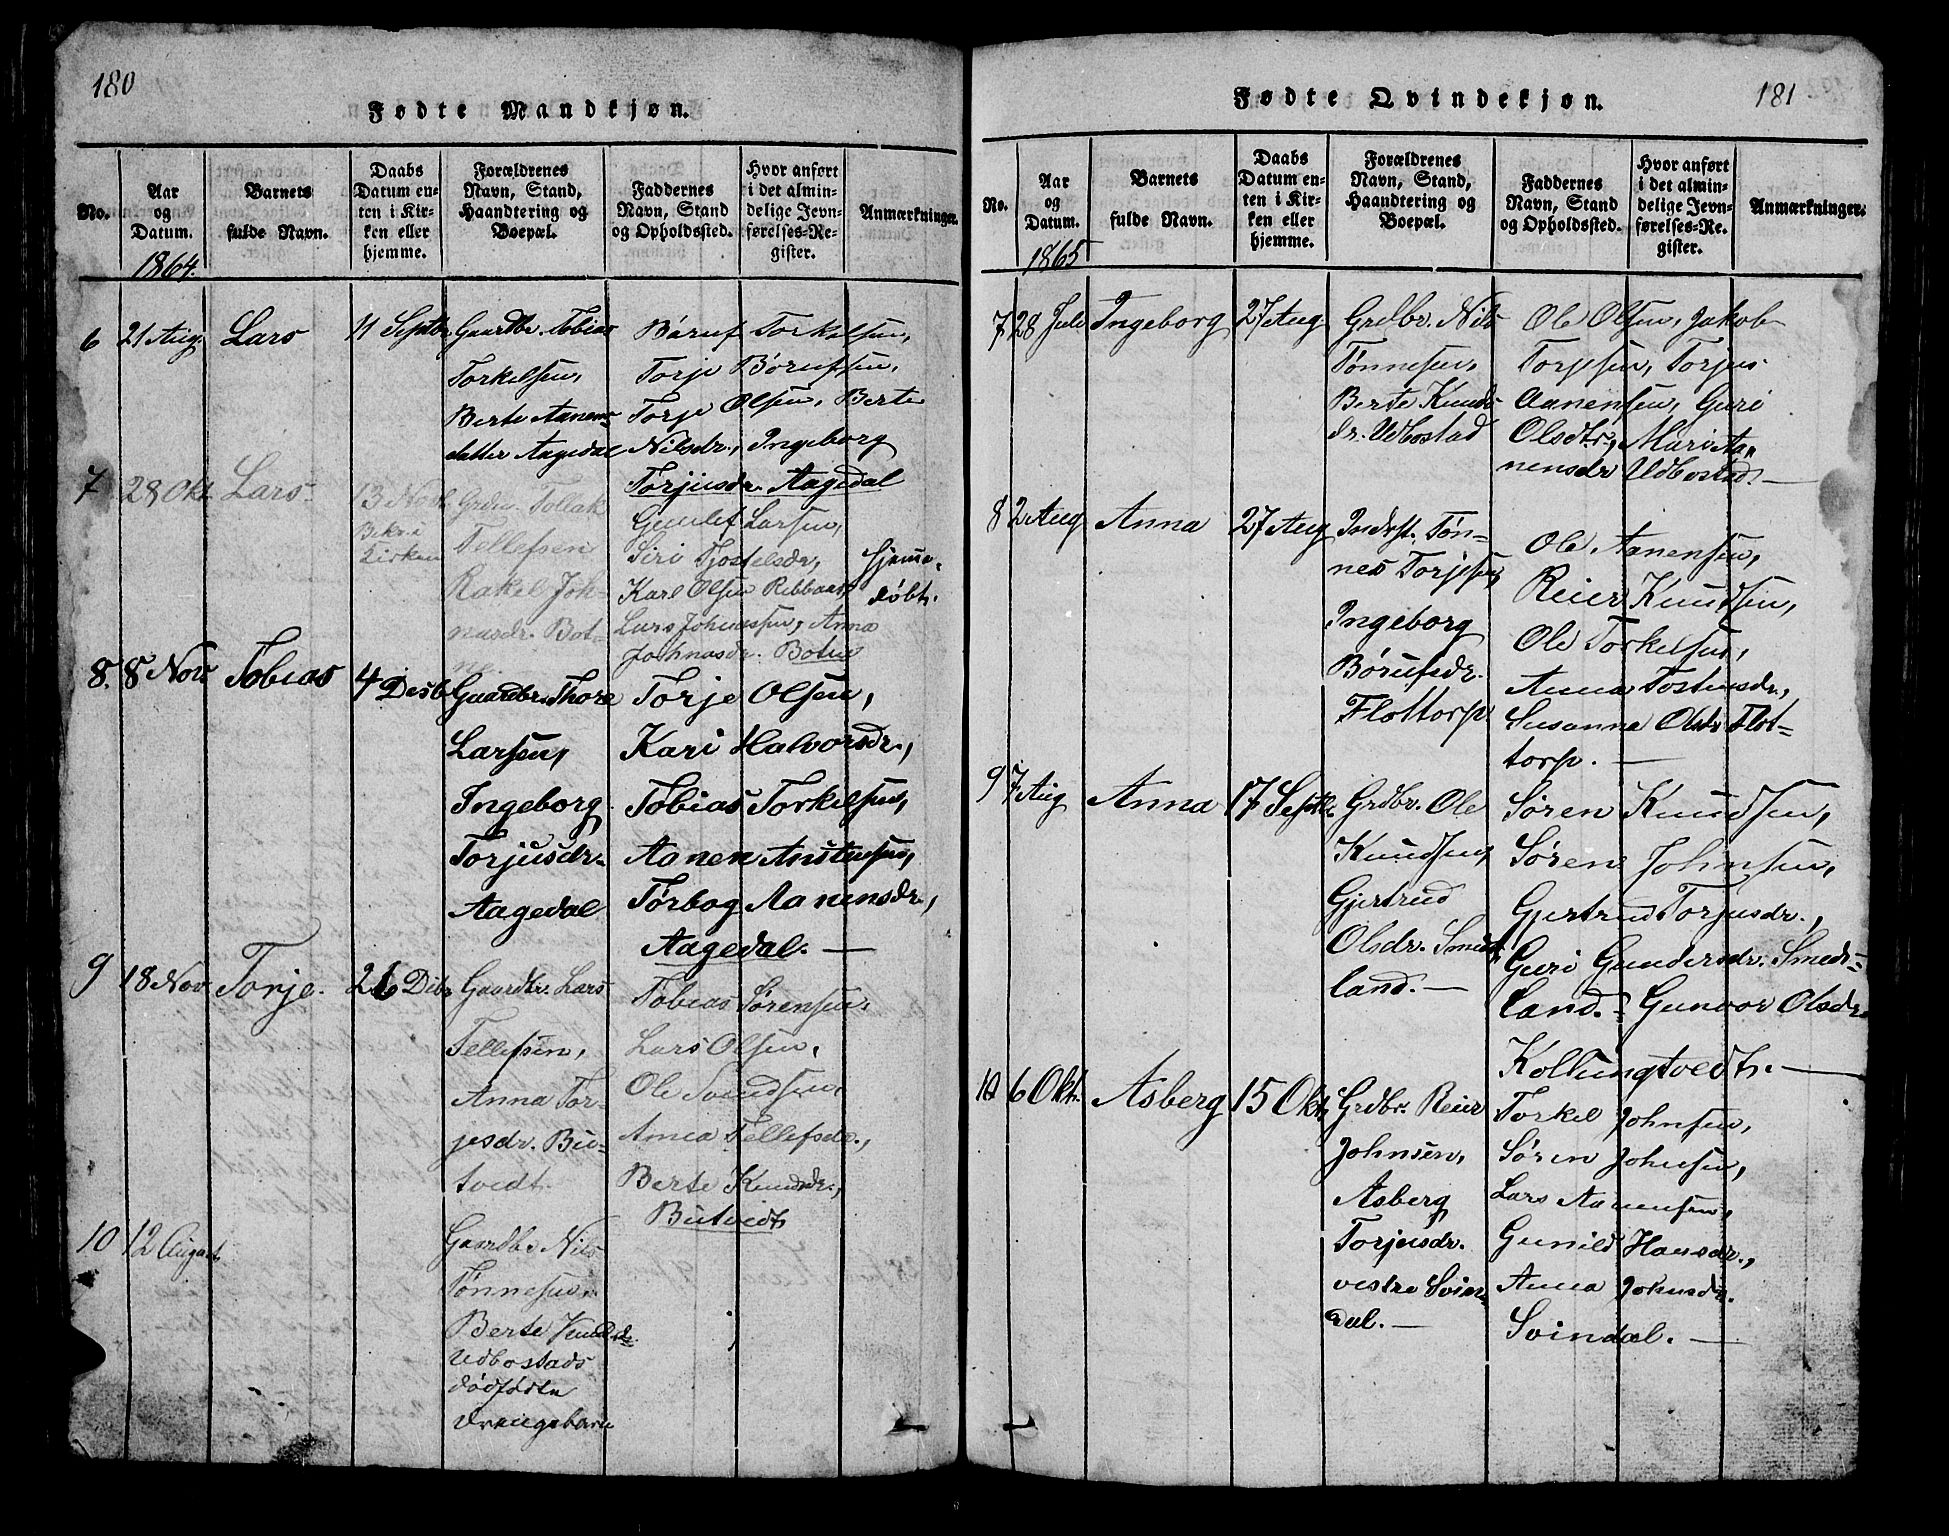 180
Fødte Mandkjøn.
No.
Aar
og
Datum.
Barnets
fulde Navn.
Daabs
Datum en-
ten i Kir-
ken eller
hjemme.
Forældrenes
Navn, Stand,
Haandtering og
Boepæl.
Faddernes
Navn, Stand
og Opholdssted.
Hvor anført
i det almin-
delige Jevn-
førelses-Re-
gister.
Anmærkninger.
1864.
6
21 Aug.
Lars
11 Septbr
Gaardbr. Tobias
Torkelsen,
Berte Aanens-
datter Aagedal
Børuf Torkelsen,
Torje Børufsen,
Torje Olsen, Berte
Nilsdr., Ingeborg
Torjusdr. Aagedal
7
28 Okt.
Lars
13 Novb.
Bekr. i
Kirken
Grdbr. Tollak
Tellefsen
Rakel Joh-
nasdr. Bot-
ne.
Gunlef Larsen,
Siri Tjostelsdr,
Karl Olsen Ribbaas,
Lars Johnassen, Anna
Johnasdr. Botne
Hjemme-
døbt.
8.
8 Nov.
Tobias
4 Desb.
Gaardbr. Thore
Larsen,
Ingeborg
Torjusdr.
Aagedal
Torje Olsen,
Kari Halvorsdr.,
Tobias Torkelsen,
Aanen Anstensen,
Tørbog Aanensdr.,
Aagedal. —
9
18 Nov.
Torje.
26 Dibr
Gaardbr. Lars
Tellefsen,
Anna Tor-
jesdr. Bu-
tvedt.
Tobias Sørensen,
Lars Olsen,
Ole Svendsen,
Anna Tellefsdr.,
Berte Knudsdr.,
Butvedt
10
12 August
Gaardbr Nils
Tønnesen,
Berte Knudsdr.
Udbostads
dødfødte
Drengebarn
181
Fødte Qvindekjøn.
No.
Aar
og
Datum.
Barnets
fulde Navn.
Daabs
Datum en-
ten i Kir-
ken eller
hjemme.
Forældrenes
Navn, Stand,
Haandtering og
Boepæl.
Faddernes
Navn, Stand
og Opholdssted.
Hvor anført
i det almin-
delige Jevn-
førelses-Re-
gister.
Anmærkninger.
1865
7
28 Juli
Ingeborg
27 Aug
Grdbr. Nils
Tønnesen,
Berte Knuds
dr. Udbostad
Ole Olsen, Jakob
Torjesen, Torjus
Aanensen, Guri
Olsdtr., Mari Aa-
nensdr Udbostad. —
8
2 Aug
Anna
27 Aug
Inderst. Tøn-
nes Torjesen
Ingeborg
Børufsdr.
Flottorp
Ole Aanensen,
Reier Knudsen,
Ole Torkelsen,
Anna Tostensdr.,
Susanna Olsdr Flot-
torp. —
9
7 Aug
Anna
17 Septbr.
Grdbr. Ole
Knudsen,
Gjertrud
Olsdr. Smeds-
land. —
Søren Knudsen,
Søren Johnsen,
Gjertrud Torjusdr.,
Guri Gundersdr. Smeds-
land. Gunvor Olsdr.
Kollungtvedt. —
10
6 Okt.
Asberg
15 Okt.
Grdbr. Reier
Johnsen,
Asberg
Torjusdr.
vestre Svin-
dal. —
Torkel Johnsen,
Søren Johnsen,
Lars Aanensen,
Gunild Hansdr.,
Anna Johnsdr.
Svindal. —